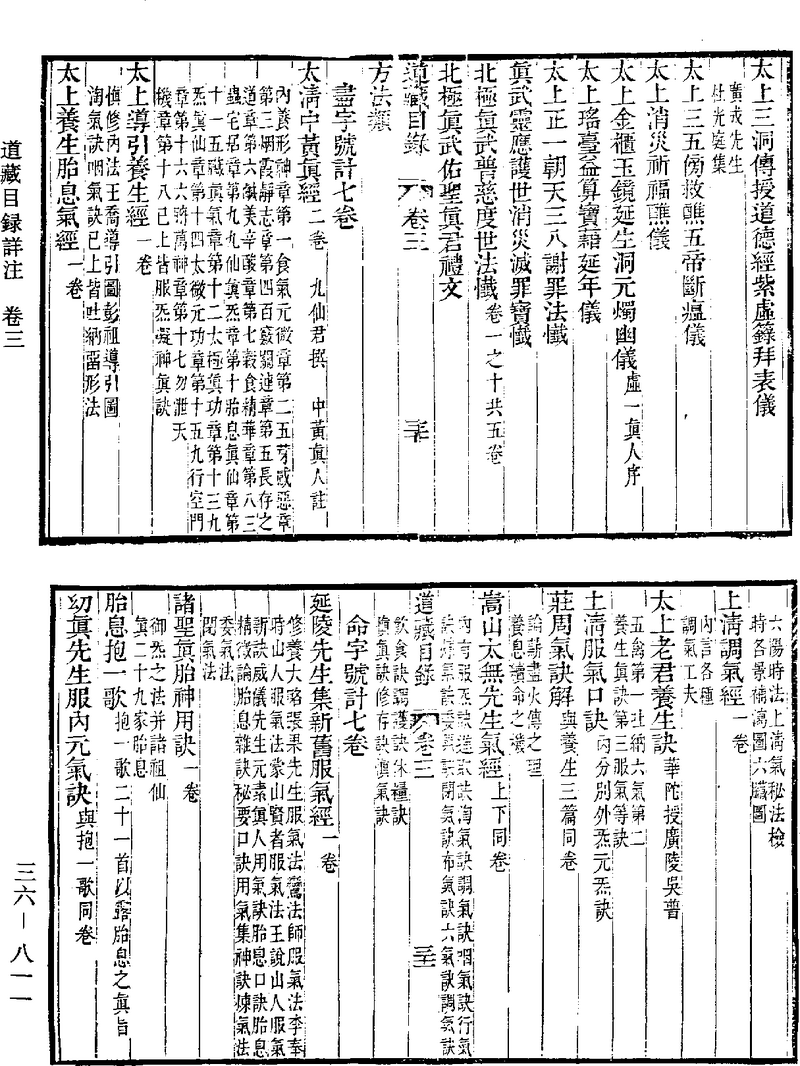 太上三洞傳授道德經紫虛籙拜表儀
廣成先生
杜光庭集
太上三五傍救醮五帝斷瘟儀
太上消災祈福醮儀
太上金櫃玉鏡延生洞元燭幽儀 虛一眞人序
太上瑤臺益算寶藉延年儀
太上正一朝天三八謝罪法懺
眞武靈應護世消災滅罪寶懺
北極眞武普慈度世法懺 卷一之十共五卷
北極眞武佑聖眞君禮文
道藏目錄 卷三
方法類
盡字號計七卷
太清中黃眞經 二卷 九仙君撰 中黃眞人註
內養形神章第一食氣元微章第二五芽咸惡章
第三烟霞靜志章第四百竅關連章第五長存之
道章第六鹹美辛酸章第七穀食精華章第八三
蟲宅居章第九九仙眞炁章第十胎息眞仙章第
十一五臟眞氣章第十二太極眞功章第十三九
炁眞仙章第十四太微元功章第十五九行空門
章第十六六將萬神章第十七勿泄天
機章第十八已上皆服炁凝神眞訣
太上導引養生經 一卷
愼修內法王喬導引圖彭祖導引圖
淘氣訣咽氣訣已上皆吐納畱形法
太上養生胎息氣經 一卷
道藏目錄詳注 卷三
六陽時法上清氣秘法檢
時各景補瀉圖六臟圖
上清調氣經 一卷
內言各種
調氣工夫
太上老君養生訣 華陀授廣陵吳普
五禽第一吐納六氣第二
養生眞訣第三服氣等訣
上清服氣口訣 內分別外炁元炁訣
莊周氣訣解 與養生三篇同卷
論薪盡火傳之理
養息續命之機
嵩山太無先生氣經 上下同卷
淘氣訣調氣訣咽氣訣行氣
訣閉氣訣布氣訣六氣訣調氣訣
飲食訣調護訣休糧訣
愼眞訣修存訣愼氣訣
道藏目錄 卷三
命字號計七卷
延陵先生集新舊服氣經 一卷
修養大略張果先生服氣法鸞法師服氣法李奉
時山人服氣法蒙山賢者服氣法王說山人服氣
新訣威儀先生元素眞人用氣訣胎息口訣胎息
精微論胎息雜訣秘要口訣用氣集神訣煉氣法
委氣法
閉氣法
諸聖眞胎神用訣 一卷
御炁之法并諸祖仙
眞二十九家胎息
胎息抱一歌 抱一歌二十一首以露胎息之眞旨
幼眞先生服內元氣訣 與抱一歌同卷
三六—八一一